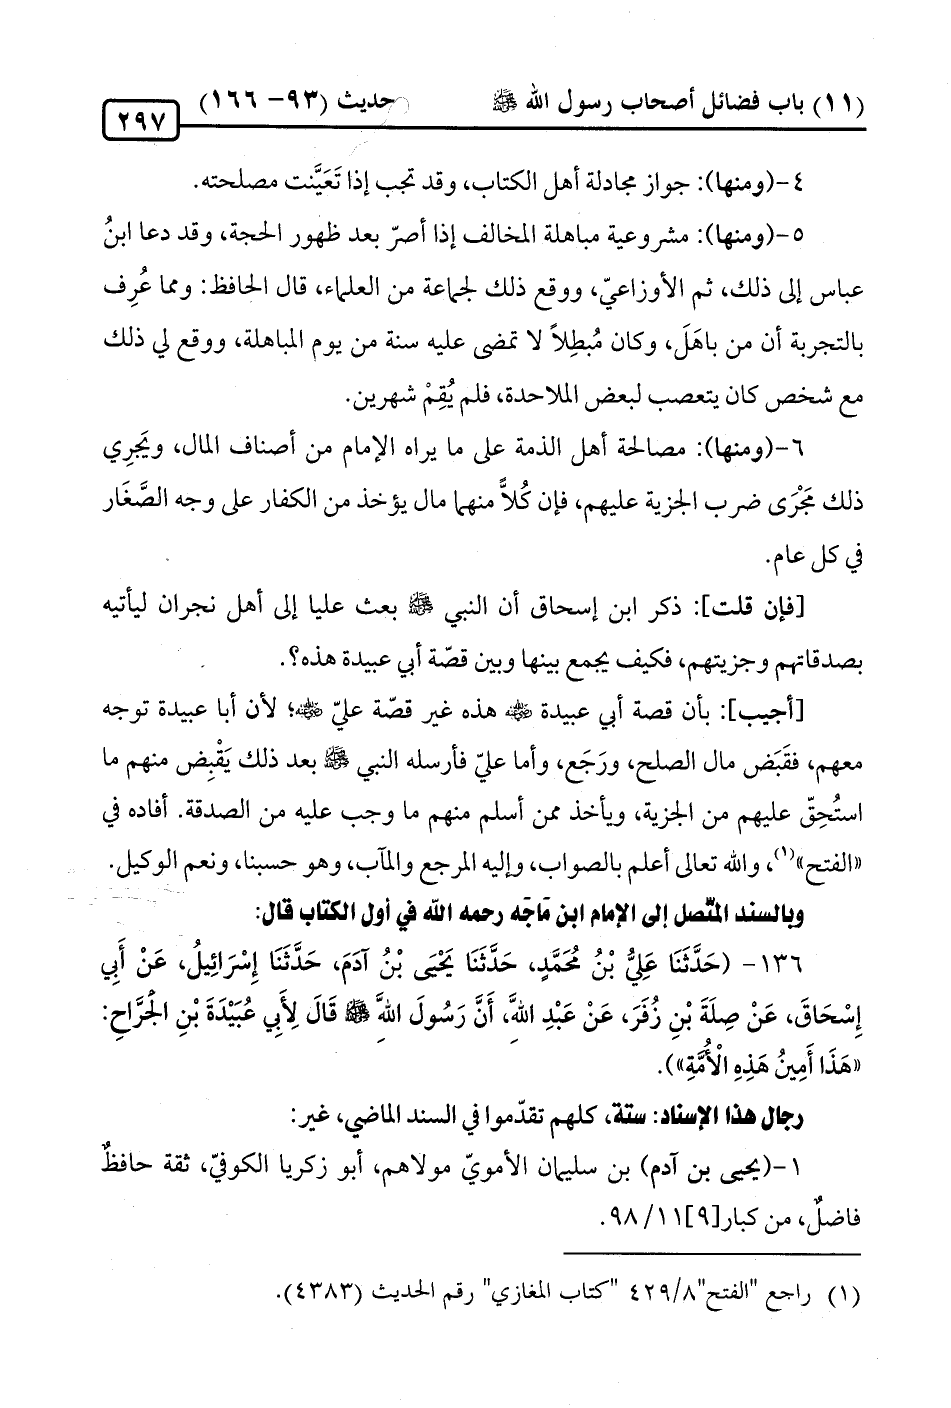 (١١) باب فضائل أصحاب رسول الله ﷺ حديث (٩٣- ١٦٦)
٢٩٧
٤-(ومنها): جواز مجادلة أهل الكتاب، وقد تجب إذا تَعَيَّنت مصلحته.
٥-(ومنها): مشروعية مباهلة المخالف إذا أصرّ بعد ظهور الحجة، وقد دعا ابنُ
عباس إلى ذلك، ثم الأوزاعيّ، ووقع ذلك لجماعة من العلماء، قال الحافظ: ومما عُرِف
بالتجربة أن من باهَلَ، وكان مُبطِلاً لا تمضى عليه سنة من يوم المباهلة، ووقع لي ذلك
مع شخص كان يتعصب لبعض الملاحدة، فلم يُقِمْ شهرين.
٦-(ومنها): مصالحة أهل الذمة على ما يراه الإمام من أصناف المال، ويَجرِي
ذلك مَجْرَى ضرب الجزية عليهم، فإن كُلاًّ منهما مال يؤخذ من الكفار على وجه الصَّغَار
في كل عام.
[فإن قلت]: ذكر ابن إسحاق أن النبي ﷺ بعث عليا إلى أهل نجران ليأتيه
بصدقاتهم وجزيتهم، فكيف يجمع بينها وبين قصّة أبي عبيدة هذه؟.
[أجيب]: بأن قصة أبي عبيدة رضي الله عنه هذه غير قصّة عليّ رضي الله عنه؛ لأن أبا عبيدة توجه
معهم، فقَبَض مال الصلح، ورَجَع، وأما عليّ فأرسله النبي ﷺ بعد ذلك يَقْبِض منهم ما
استُحِقّ عليهم من الجزية، ويأخذ ممن أسلم منهم ما وجب عليه من الصدقة. أفاده في
«الفتح»(١)، والله تعالى أعلم بالصواب، وإليه المرجع والمآب، وهو حسبنا، ونعم الوكيل.
وبالسند المتّصل إلى الإمام ابن مَاجَه رحمه الله في أول الكتاب قال:
١٣٦- (حَدَّثَنَا عَلِيُّ بْنُ مُحَمَّدٍ، حَدَّثَنَا يَحْيَى بْنُ آدَمَ، حَدَّثَنَا إِسْرَائِيلُ، عَنْ أَبِي
إِسْحَاقَ، عَنْ صِلَةَ بْنِ زُفَرَ، عَنْ عَبْدِ اللهِ، أَنَّ رَسُولَ اللهِ ﷺ قَالَ لِأَبِي عُبَيْدَةَ بْنِ الْجَرَّاحِ:
«هَذَا أَمِينُ هَذِهِ الْأُمَّةِ»).
رجال هذا الإسناد: ستة، كلهم تقدّموا في السند الماضي، غير:
١-(يحيى بن آدم) بن سليمان الأمويّ مولاهم، أبو زكريا الكوفيّ، ثقة حافظٌ
فاضلٌ، من كبار[٩]٩٨/١١.
(١) راجع "الفتح"٤٢٩/٨ "كتاب المغازي" رقم الحديث (٤٣٨٣).